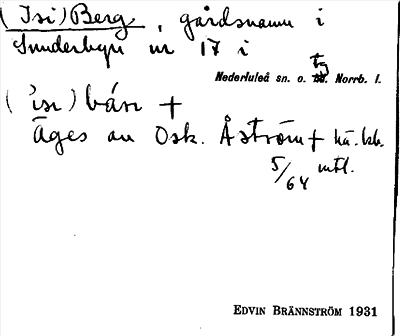 (Isi) Berg, gårdsnamn i
Sunderbyn nr 17 i
Nederluleå sn. o. tg Norrb. l.
(ısı) bárı +
Äges av Osk. Åström + hä.
5/64 mtl.
EDVIN BRÄNNSTRÖM 1931